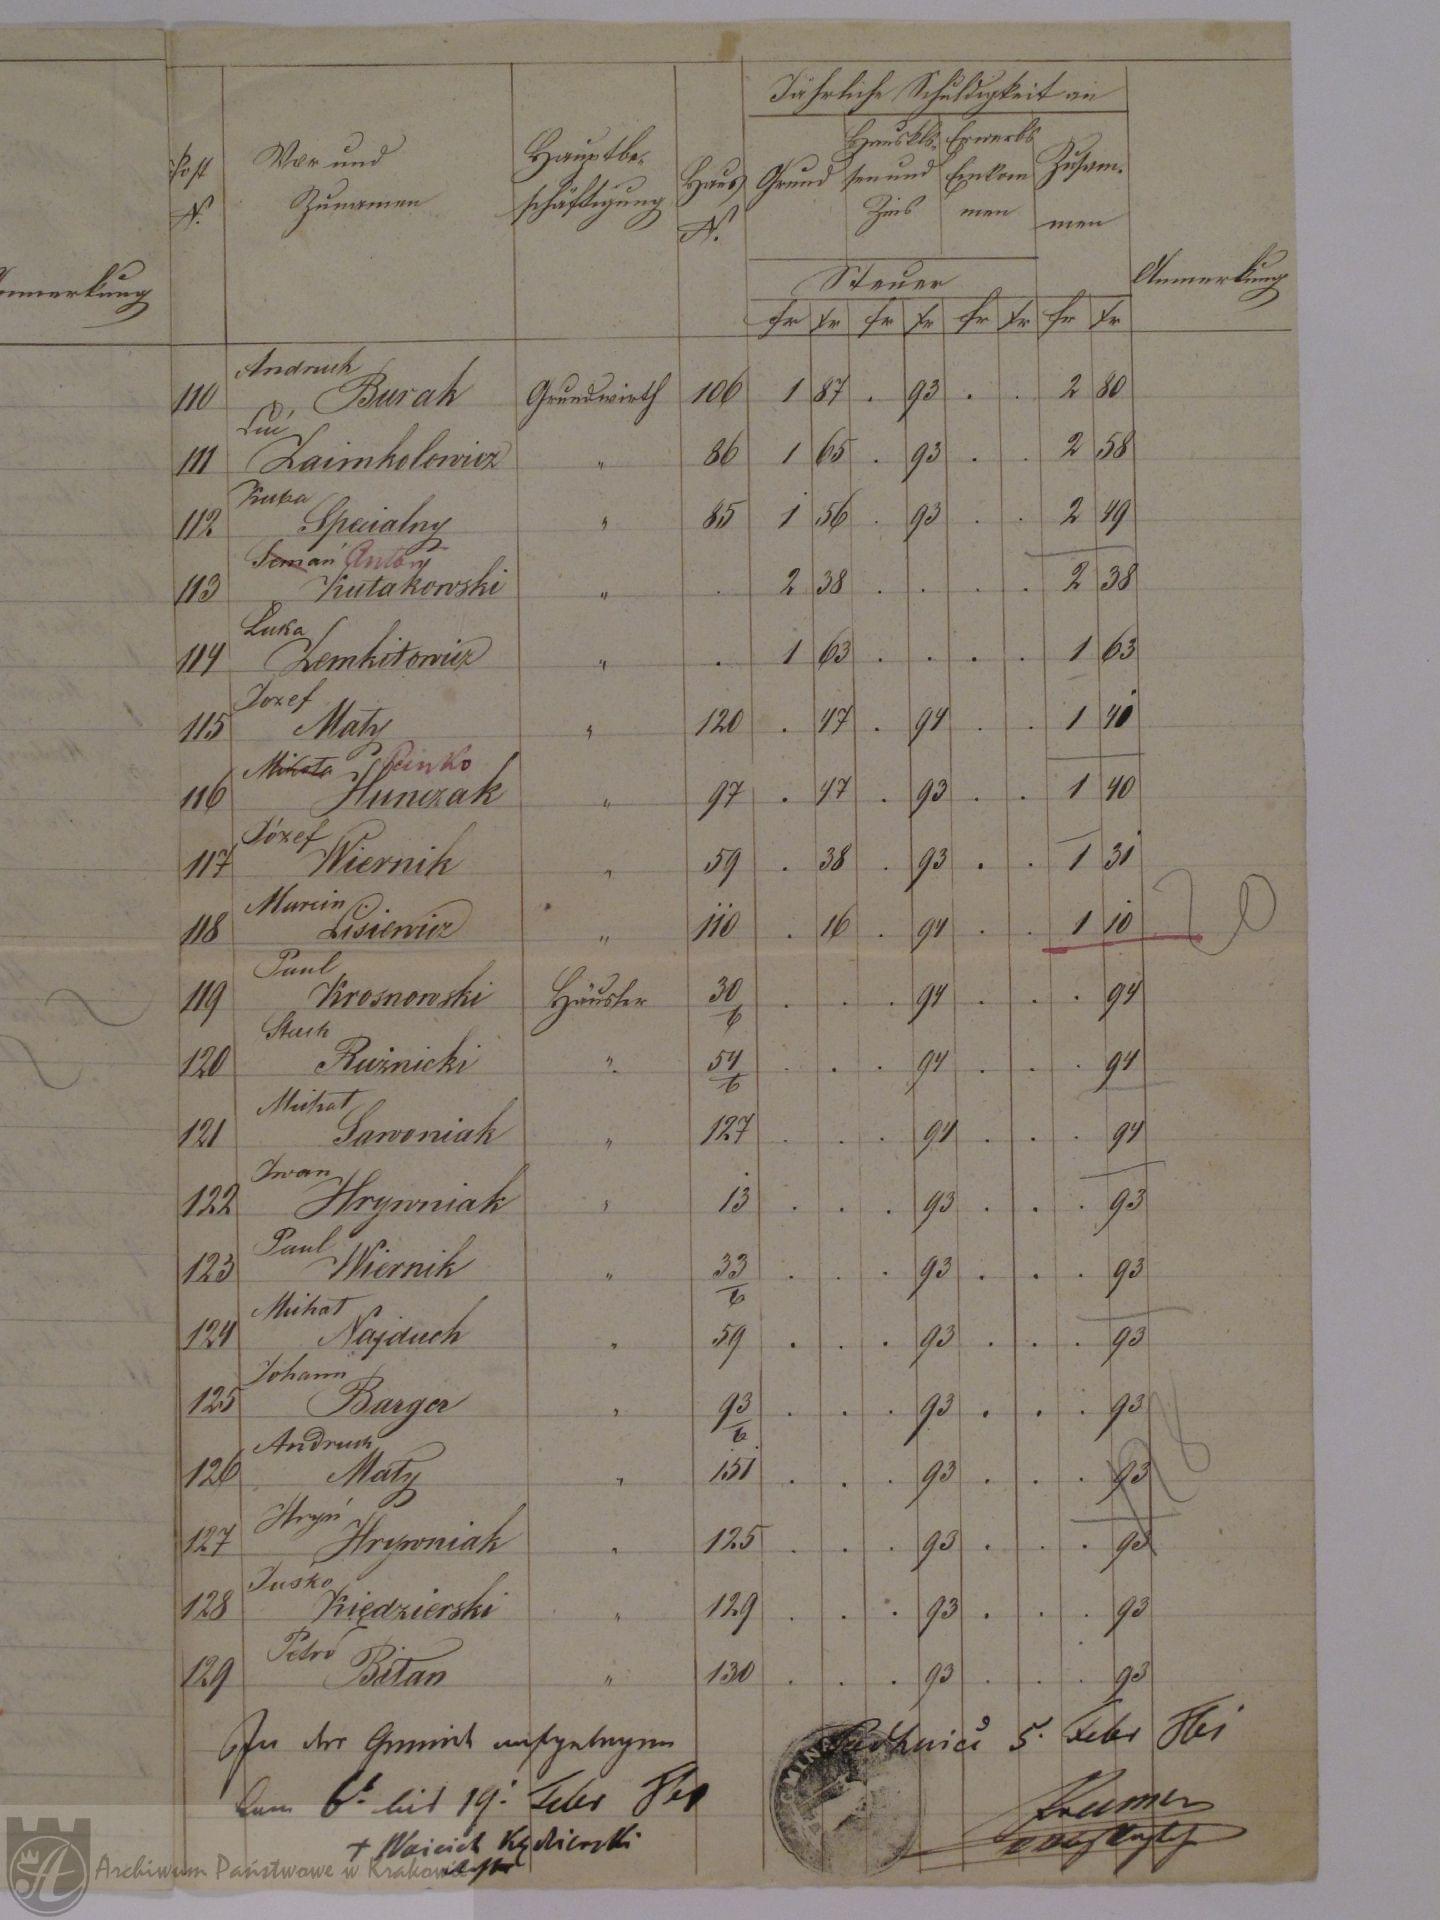 Anmerkung
Jährliche Schuldigkeit an
Post N. Vor und Zunamen Hauptbeschäftigung Haus N. Grund Hauskls. sen und Zins Erwerbs Einkommen Zusammen Anmerkung
Steuer
fr xr fr xr fr xr fr xr
Andruch
110 Burak Grundwirth 106 1 87 . 93 . . 2 80
111 " 86 1 65 . 93 . . 2 58
Kuba
112 Specialny " 85 1 56 . 93 . . 2 49
Semań Antony
113 Kutakowski " . 2 38 . . . . 2 38
Luka
114 Zemkitowicz " . 1 63 . . . . 1 63
Jozef
115 Maty " 120 . 47 . 94 . . 1 40
Mikota Senko
116 Hunczak " 97 . 47 . 93 . . 1 40
Józef
117 Wiernik " 59 . 38 . 93 . . 1 31
Marcin
118 Lisiewicz " 110 . 16 . 94 . . 1 10 20
Paul
119 Krosnowski Häusler 30/6 . . . 94 . . . 94
Stach
120 Ruźnicki " 54/6 . . . 94 . . . 94
Michat
121 Sawoniak " 127 . . . 94 . . . 94
Iwan
122 Hrywniak " 13 . . . 93 . . . 93
Paul
123 Wiernik " 33/6 . . . 93 . . . 93
Michat
124 Najduch " 59 . . . 93 . . . 93
Johann
125 Barger " 93/6 . . . 93 . . . 93
Andruch
126 Maty " 151 . . . 93 . . . 93
Hryń
127 Hrywniak " 125 . . . 93 . . . 93
Jusko
128 Kiędzierski " 129 . . . 93 . . . 93
Petro
129 Bitan " 130 . . . 93 . . . 93
In der 5. Feber
vom 6t bis 19. Feber
+ Woicich Kędzierski
Archiwum Państwowe w Krakowie